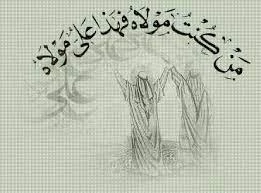 مَن كُنْتُ مَوْلَاهُ فَهَذَا عَلِيٌّ مَوْلَاهُ